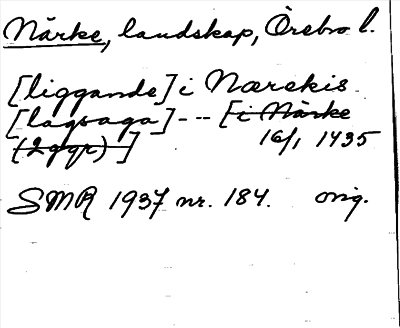 Närke, landskap, Örebro l.
[liggande] i Nærekis
[lagsaga] --- [i Närke
(2 ggr)] 16/1 1435
SMR 1937 nr. 184. orig.